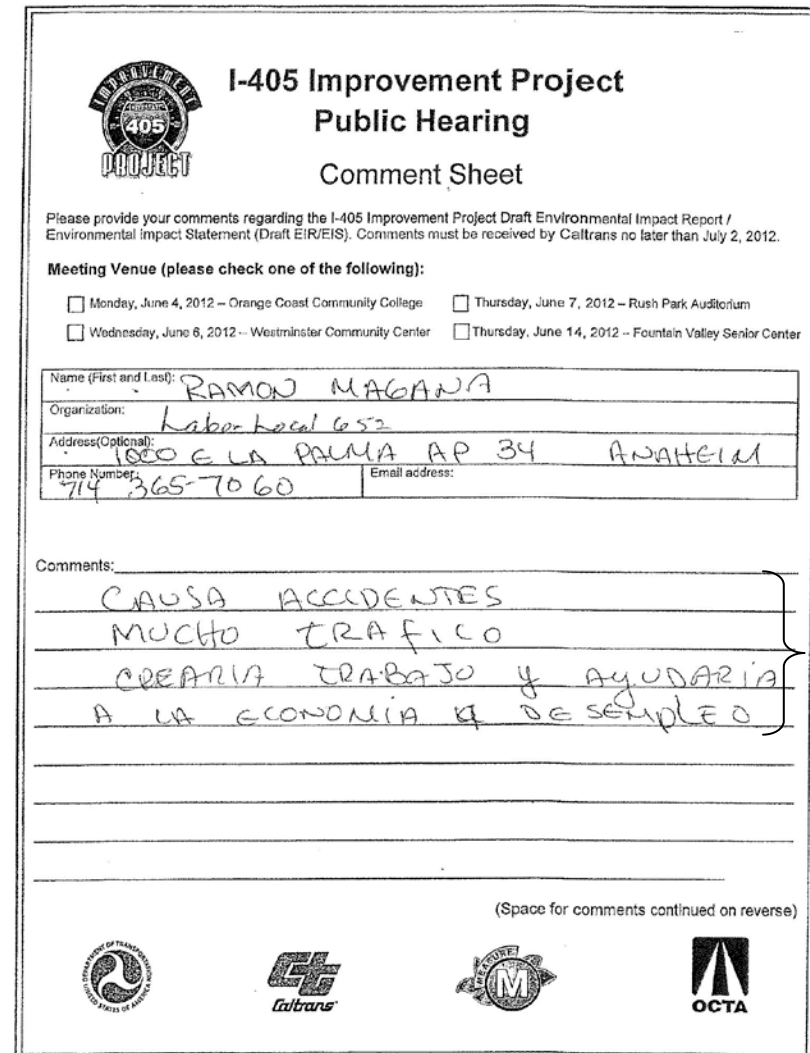 IMPROVEMENT
405
PROJECT
I-405 Improvement Project
Public Hearing
Comment Sheet
Please provide your comments regarding the I-405 Improvement Project Draft Environmental Impact Report /
Environmental Impact Statement (Draft EIR/EIS). Comments must be received by Caltrans no later than July 2, 2012.
Meeting Venue (please check one of the following):
Monday, June 4, 2012 – Orange Coast Community College
Thursday, June 7, 2012 – Rush Park Auditorium
Wednesday, June 6, 2012 – Westminster Community Center
Thursday, June 14, 2012 – Fountain Valley Senior Center
Name (First and Last): RAMON MAGANA
Organization: Labor Local 652
Address(Optional): 1000 E LA PALMA AP 34 ANAHEIM
Phone Number: 714 365-7060
Email address:
Comments:
CAUSA ACCCDENTES
MUCHO TRAFICO
CREARIA TRABAJO Y AYUDARIA
A LA ECONOMIA DESEMPLEO
(Space for comments continued on reverse)
DEPARTMENT OF TRANSPORTATION
UNITED STATES OF AMERICA
Caltrans
MEASURE
M
OCTA